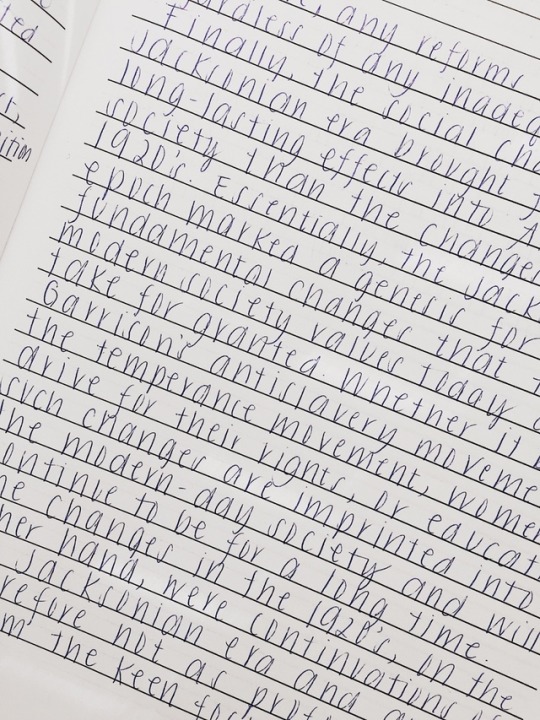 ted
ition
any reforms
regardless of any inadeq
Finally, the social cha
Jacksonian era brought f
long-lasting effects into
society than the changes
1920's. Essentially, the Jack
epoch marked a genesis for
fundamental changes that
modern society values today
take for granted. Whether it
Garrison's antislavery moveme
the temperance movement, women
drive for their rights, or educati
such changes are imprinted into
the modern-day society and will
continue to be for a long time.
the changes in the 1920's, on the
her hand, were continuations
Jacksonian era and
refore not as
m the keen